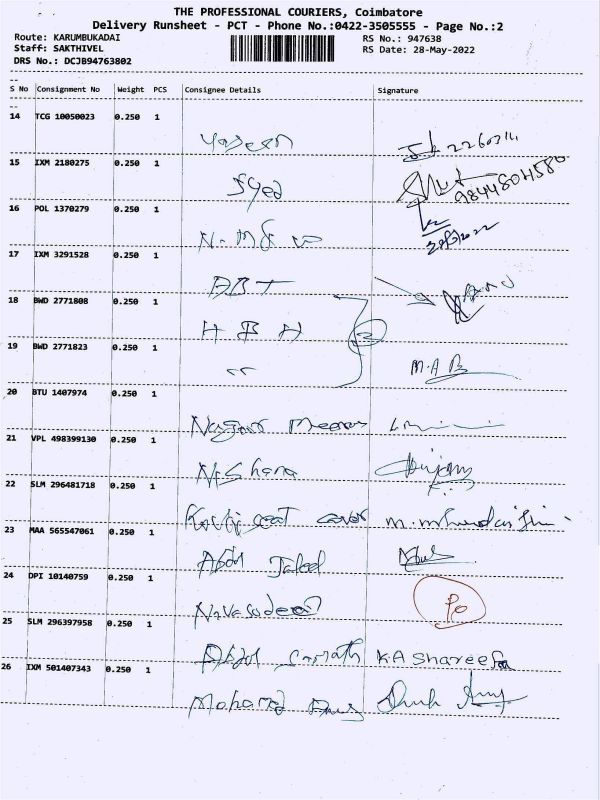 THE PROFESSIONAL COURIERS, Coimbatore
Delivery Runsheet - PCT - Phone No.:0422-3505555 - Page No.:2
Route: KARUMBUKADAI RS No.: 947638
Staff: SAKTHIVEL RS Date: 28-May-2022
DRS No.: DCJB94763802
S No Consignment No Weight PCS Consignee Details Signature
14 TCG 10050023 0.250 1
Yaseen
15 IXM 2180275 0.250 1
Syed 9844804580
16 POL 1370279 0.250 1
17 IXM 3291528 0.250 1
ABT
18 BWD 2771808 0.250 1
H B H
19 BWD 2771823 0.250 1
M.A.B
20 BTU 1407974 0.250 1
Nagoor Meeran
21 VPL 498399130 0.250 1
Nishana
22 SLM 296481718 0.250 1
seat cover
23 MAA 565547061 0.250 1
Abdul Jaleel
24 DPI 10140759 0.250 1
Navasudeen
25 SLM 296397958 0.250 1
Abdul K.A Shareefa
26 IXM 501407343 0.250 1
Mohamed